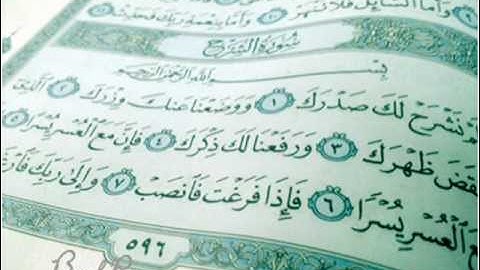 وَأَمَّا ٱلسَّآئِلَ فَلَا تَنْهَرْ ١٠
وَأَمَّا بِنِعْمَةِ رَبِّكَ فَحَدِّثْ
سُورَةُ الشَّرْحِ
بِسْمِ ٱللَّهِ ٱلرَّحْمَٰنِ ٱلرَّحِيمِ
نَشْرَحْ لَكَ صَدْرَكَ ١ وَوَضَعْنَا عَنكَ وِزْرَكَ ٢ ٱلَّذِىٓ
ظَهْرَكَ ٣ وَرَفَعْنَا لَكَ ذِكْرَكَ ٤ فَإِنَّ مَعَ ٱلْعُسْرِ يُسْرًا ٥
مَعَ ٱلْعُسْرِ يُسْرًا ٦ فَإِذَا فَرَغْتَ فَٱنصَبْ ٧ وَإِلَىٰ رَبِّكَ
٥٩٦